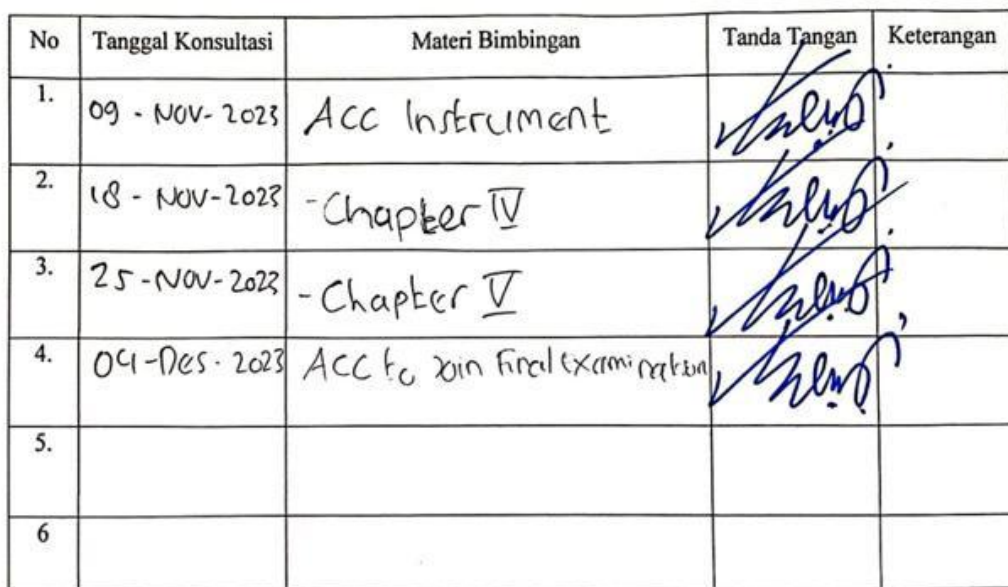 No Tanggal Konsultasi Materi Bimbingan Tanda Tangan Keterangan
1. 09 - NOV - 2023 ACC Instrument
2. 18 - NOV - 2023 - Chapter IV
3. 25 - NOV - 2023 - Chapter V
4. 04 - Des - 2023 ACC to Join Final Examination
5.
6